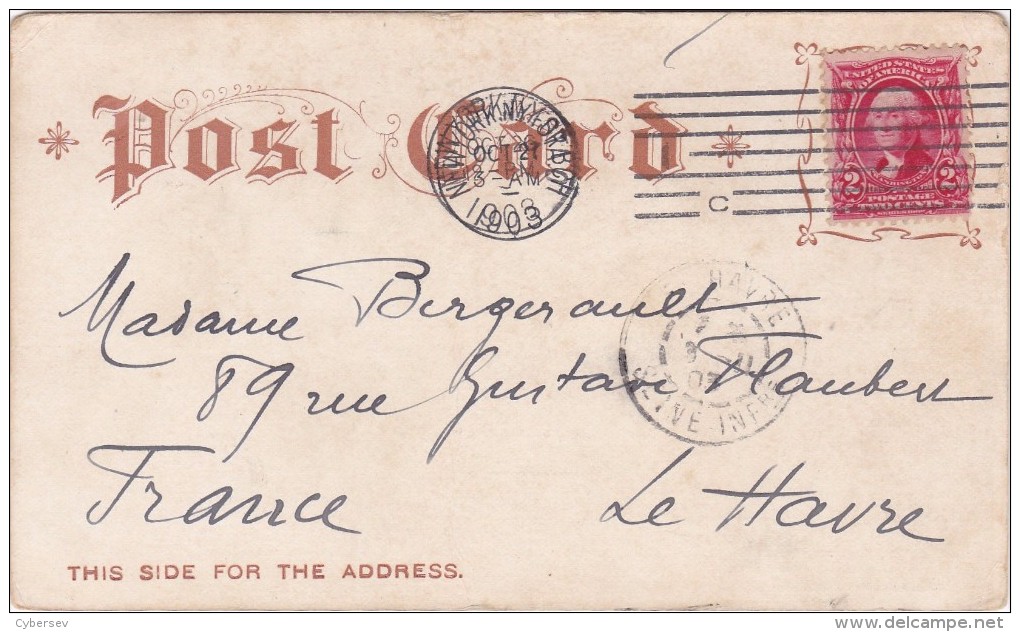 Post Card
NEW YORK, N.Y.
OCT 27
3-AM
1903
C
UNITED STATES
OF AMERICA
2 2
POSTAGE
TWO CENTS
Madame Bergerault
89 rue Gustave Flaubert
France Le Havre
HAVRE
03
SEINE INFRE
THIS SIDE FOR THE ADDRESS.
Cybersev
delcampe.net